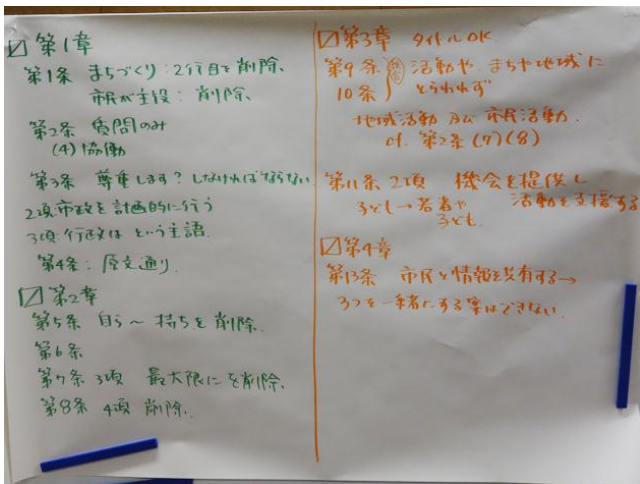 ☑ 第1章
第1条 まちづくり:2行目を削除、
市民が主役:削除、
第2条 質問のみ
(4)協働
第3条 尊重します?しなければならない
2項:市政を計画的に行う
3項:行政は という主語
第4条:原文通り
☑ 第2章
第5条 自ら～持ちを削除
第6条
第7条 3項 最大限にを削除、
第8条 4項 削除、
☑第3章 タイトルOK
第9条 活動や まちや地域に
10条 とらわれず
地域活動及び市民活動.
cf. 第2条(7)(8)
第11条 2項 機会を提供し
活動を支援する
子ども→若者や
子ども
☑第4章
第13条 市民と情報を共有する→
3つを一緒にする事はできない